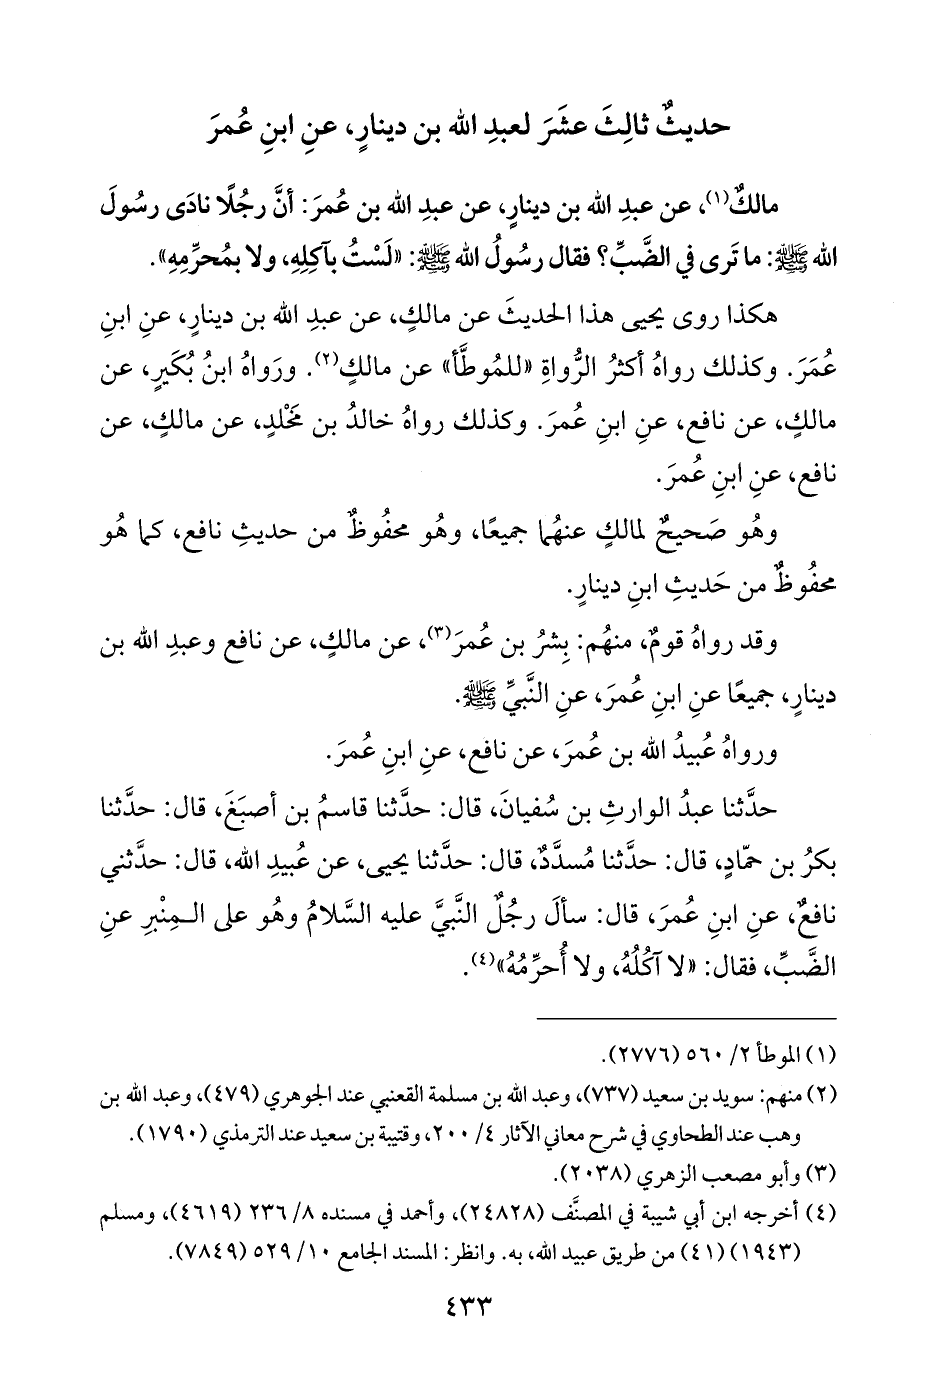 حديثٌ ثالِثَ عشَرَ لعبدِ الله بن دينارٍ، عنِ ابنِ عُمرَ
مالكٌ(١)، عن عبدِ الله بن دينارٍ، عن عبدِ الله بن عُمرَ: أنَّ رجُلًا نادَى رسُولَ
الله ﷺ: ما تَرى في الضَّبِّ؟ فقال رسُولُ الله ﷺ: «لَسْتُ بآكِلِهِ، ولا بمُحرِّمِهِ».
هكذا روى يحيى هذا الحديثَ عن مالكٍ، عن عبدِ الله بن دينارٍ، عنِ ابنِ
عُمَرَ. وكذلك رواهُ أكثرُ الرُّواةِ «للمُوطَّأ» عن مالكٍ(٢). ورَواهُ ابنُ بُكَيرٍ، عن
مالكٍ، عن نافع، عنِ ابنِ عُمرَ. وكذلك رواهُ خالدُ بن مَخْلدٍ، عن مالكٍ، عن
نافع، عنِ ابنِ عُمرَ.
وهُو صَحيحٌ لمالكٍ عنهُما جميعًا، وهُو محفُوظٌ من حديثِ نافع، كما هُو
محفُوظٌ من حَديثِ ابنِ دينارٍ.
وقد رواهُ قومٌ، منهُم: بِشرُ بن عُمرَ(٣)، عن مالكٍ، عن نافع وعبدِ الله بن
دينارٍ، جميعًا عنِ ابنِ عُمرَ، عنِ النَّبيِّ ﷺ.
ورواهُ عُبيدُ الله بن عُمرَ، عن نافع، عنِ ابنِ عُمرَ.
حدَّثنا عبدُ الوارثِ بن سُفيانَ، قال: حدَّثنا قاسمُ بن أصبَغَ، قال: حدَّثنا
بكرُ بن حمّادٍ، قال: حدَّثنا مُسدَّدٌ، قال: حدَّثنا يحيى، عن عُبيدِ الله، قال: حدَّثني
نافعٌ، عنِ ابنِ عُمرَ، قال: سألَ رجُلٌ النَّبيَّ عليه السَّلامُ وهُو على المِنْبرِ عنِ
الضَّبِّ، فقال: «لا آكُلُهُ، ولا أُحرِّمُهُ»(٤).
(١) الموطأ ٢/ ٥٦٠ (٢٧٧٦).
(٢) منهم: سويد بن سعيد (٧٣٧)، وعبد الله بن مسلمة القعنبي عند الجوهري (٤٧٩)، وعبد الله بن
وهب عند الطحاوي في شرح معاني الآثار ٤/ ٢٠٠، وقتيبة بن سعيد عند الترمذي (١٧٩٠).
(٣) وأبو مصعب الزهري (٢٠٣٨).
(٤) أخرجه ابن أبي شيبة في المصنَّف (٢٤٨٢٨)، وأحمد في مسنده ٨/ ٢٣٦ (٤٦١٩)، ومسلم
(١٩٤٣) (٤١) من طريق عبيد الله، به. وانظر: المسند الجامع ١٠/ ٥٢٩ (٧٨٤٩).
٤٣٣